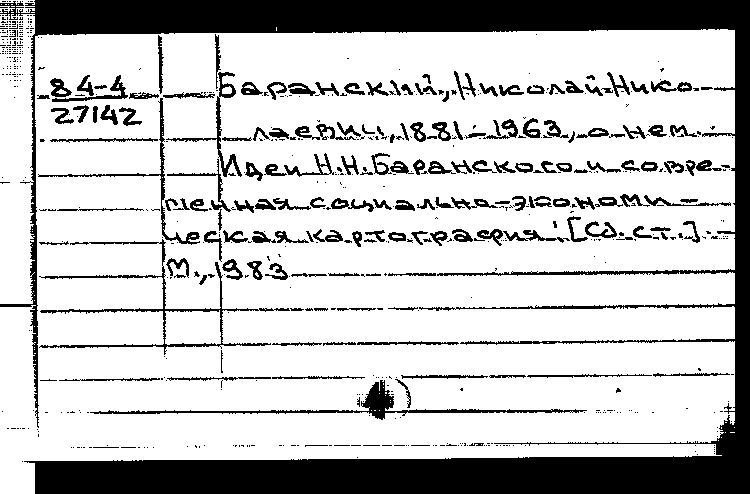 84-4
27142
Баранский, Николай Нико
лаевич, 1881-1963, о нем.
Идеи Н.Н.Баранского и совре-
менная социально-экономи-
ческая картография: [Сб.ст.].-
М., 1983